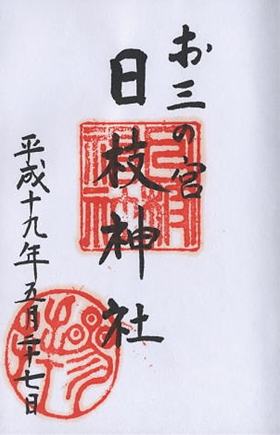 お三の宮
日枝神社
平成十九年五月二十七日